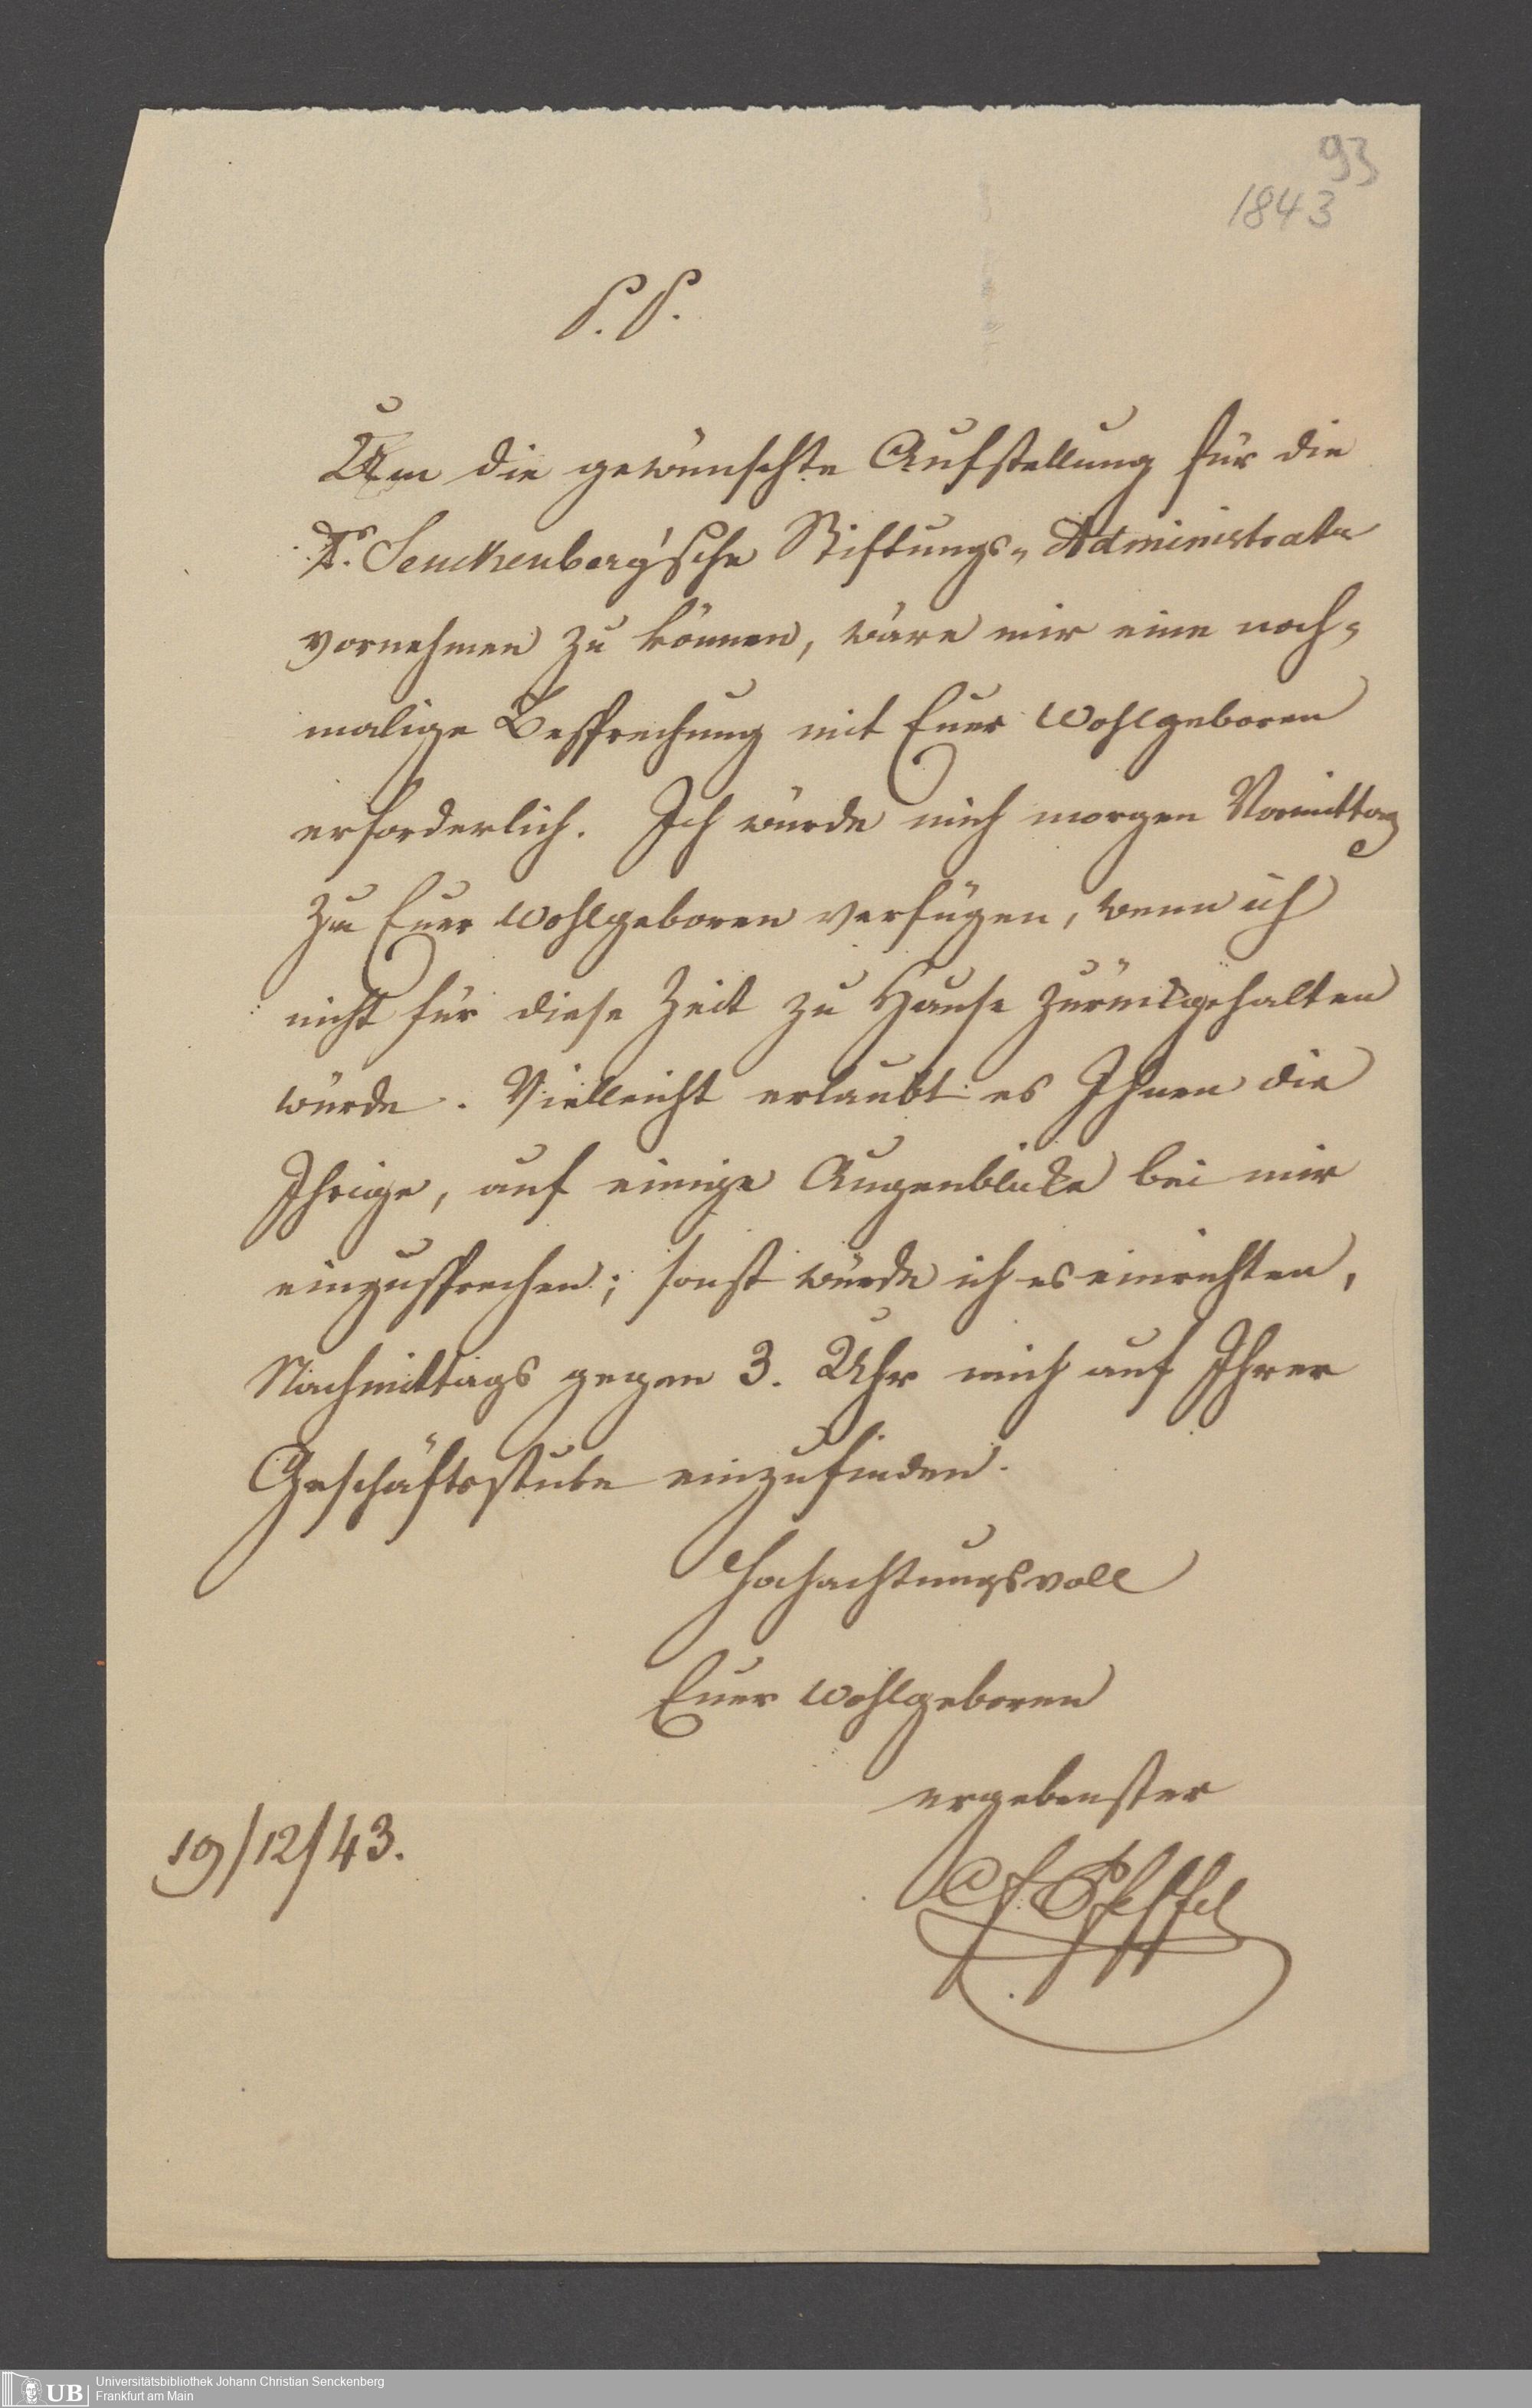 93
1843
P. P.
Um die gewünschte Aufstellung für die
Dr. Senckenberg'sche Stiftungs-Administratn
vornehmen zu können, wäre mir eine noch-
malige Besprechung mit Euer Wohlgeboren
erforderlich. Ich würde mich morgen Vormittag
zu Euer Wohlgeboren verfügen, wenn ich
nicht für diese Zeit zu Hause zurückgehalten
würde. Vielleicht erlaubt es Ihnen die
Ihrige, auf einige Augenblicke bei mir
einzusprechen; sonst würde ich es einrichten,
Nachmittags gegen 3. Uhr mich auf Ihrer
Geschäftsstube einzufinden.
Hochachtungsvoll
Euer Wohlgeboren
ergebenster
19/12/43.
C F Pfeffel
UB
Universitätsbibliothek Johann Christian Senckenberg
Frankfurt am Main